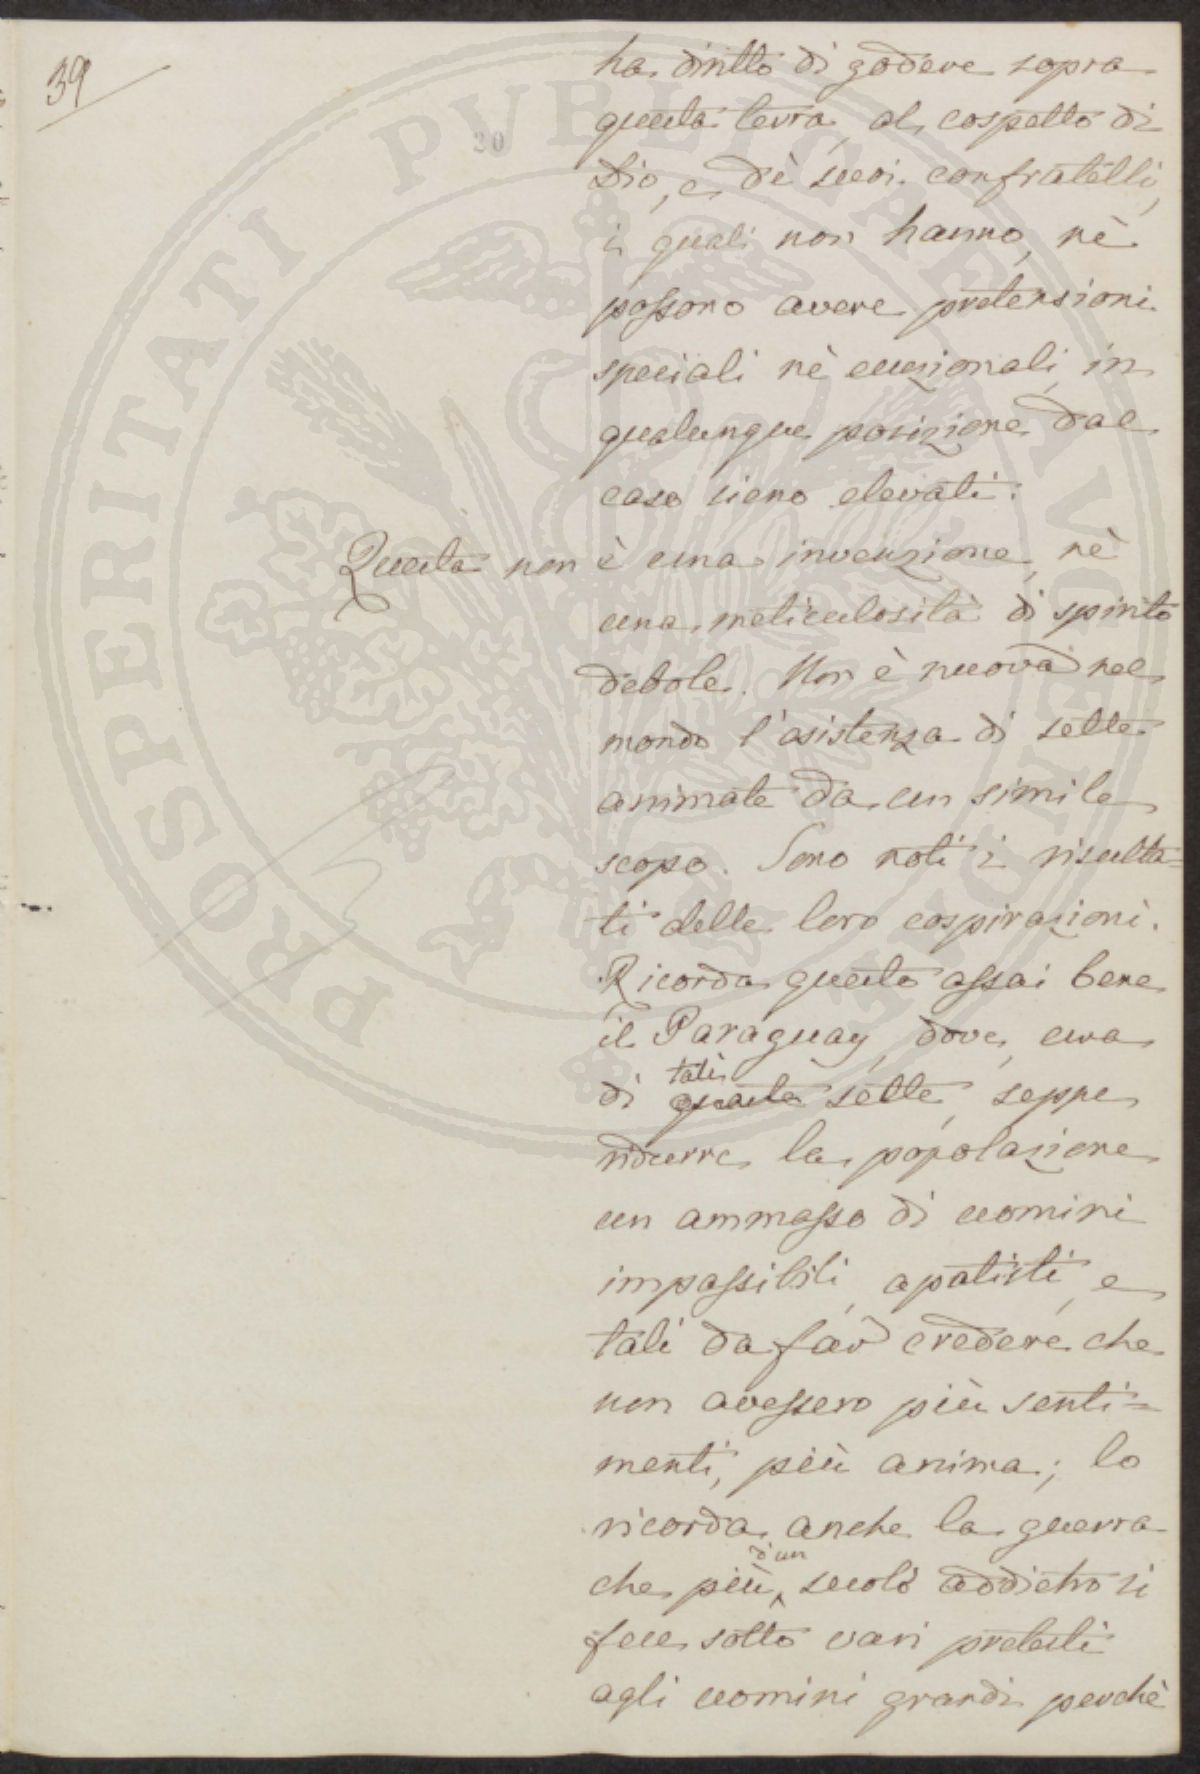 39
20
ha diritto di godere sopra
questa terra, al cospetto di
Dio, e dè suoi confratelli,
i quali non hanno, nè
possono avere pretensioni
speciali nè eccezionali, in
qualunque posizione dal
caso sieno elevati:
Questa non è una invenzione, nè
una meticulosità di spirito
debole. Non è nuova nel
mondo l'esistenza di sette
animate da un simile
scopo. Sono noti i risulta=
ti delle loro cospirazioni.
Ricorda questo assai bene
il Paraguay, dove, una
tali
di queste sette, seppe
ridurre la popolazione
un ammasso di uomini
impassibili, apatisti, e
tali da far credere che
non avessero più senti=
menti, più anima; lo
ricorda anche la guerra
d'un
che più secolo addietro si
fece sotto vari pretesti
agli uomini grandi perchè
PROSPERITATI PUBLICAE AUGENDAE